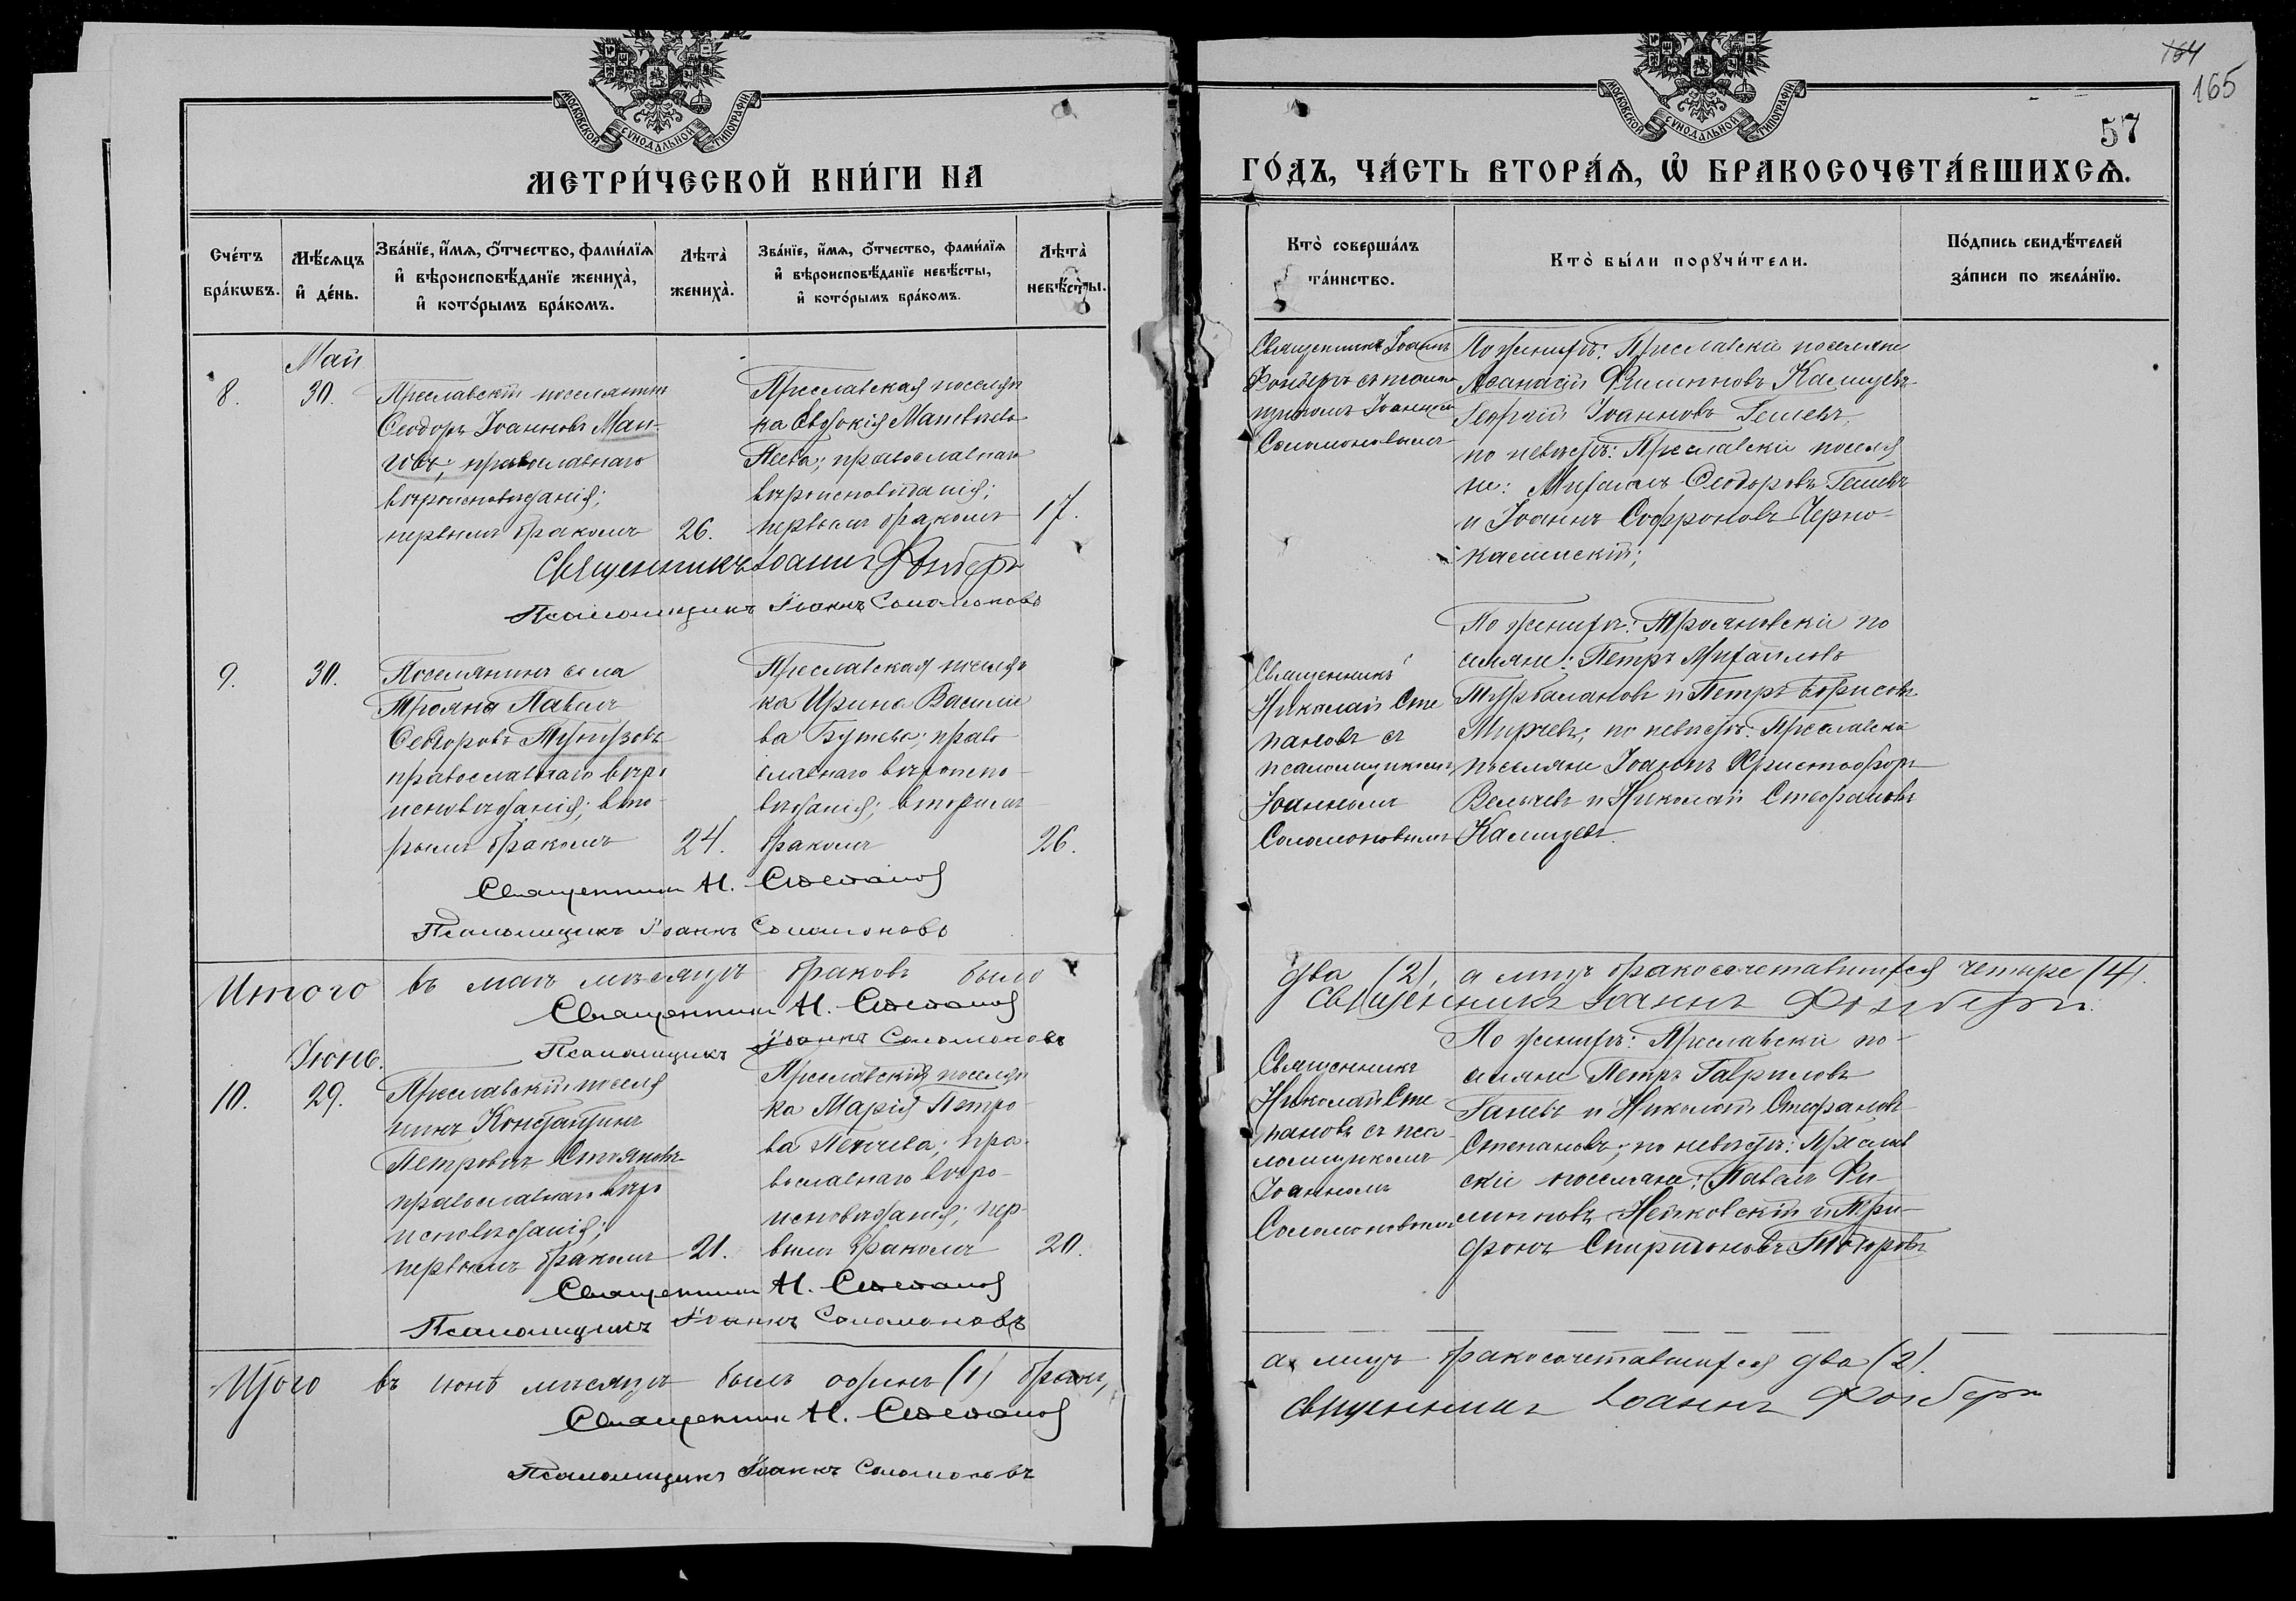 МОСКОВСКОЙ СѴНОДАЛЬНОЙ ТИПОГРАФІИ
МЕТРИ́ЧЕСКОЙ КНИ́ГИ НА
Сче́тъ бра́кѡвъ.
Мѣ́сяцъ и҆ де́нь.
Зва́нїе, и҆́мѧ, ѻ҆́тчество, фами́лїѧ
и҆ вѣроисповѣ́данїе жениха̀,
и҆ кото́рымъ бра́комъ.
Лѣта̀ жениха̀.
Зва́нїе, и҆́мѧ, ѻ҆́тчество, фами́лїѧ
и҆ вѣроисповѣ́данїе невѣ́сты,
и҆ кото́рымъ бра́комъ.
Лѣта̀ невѣ́сты.
Май
8.
30.
Преславскій поселянинъ
Ѳеодоръ Іоанновъ Ман-
овъ; православнаго
вѣроисповѣданія;
первымъ бракомъ
26.
Преславская поселян
ка Евдокія Матвѣева
православнаго
вѣроисповѣданія;
первымъ бракомъ
17.
Священникъ Іоаннъ Фонберъ
Псаломщикъ Іоаннъ Соломоновъ
9.
30.
Поселянинъ села
Трояна Павелъ
Ѳеодоровъ
православнаго вѣро
исповѣданія; вто-
рымъ бракомъ
24.
Преславская поселян
ка Ирина Василье
ва право
славнаго вѣроиспо-
вѣданія; вторымъ
бракомъ
26.
Священникъ Н. Степановъ
Псаломщикъ Іоаннъ Соломоновъ
Итого въ маѣ мѣсяцѣ браковъ было
Священникъ Н. Степановъ
Псаломщикъ Іоаннъ Соломоновъ
Іюнь.
10.
29.
Преславскій поселя
нинъ Константинъ
Петровичъ Стояновъ
православнаго вѣро
исповѣданія;
первымъ бракомъ
21.
Преславская поселян
ка Марія Петро-
ва Пейчева; пра-
вославнаго вѣро-
исповѣданія; пер-
вымъ бракомъ
20.
Священникъ Н. Степановъ
Псаломщикъ Іоаннъ Соломоновъ
Итого въ іюнѣ мѣсяцѣ былъ одинъ (1) бракъ,
Священникъ Н. Степановъ
Псаломщикъ Іоаннъ Соломоновъ
164
165
57
МОСКОВСКОЙ СѴНОДАЛЬНОЙ ТИПОГРАФІИ
ГО́ДЪ, ЧА́СТЬ ВТОРА́Ѧ, Ѽ БРАКОСОЧЕТА́ВШИХСѦ.
Кто̀ соверша́лъ
та́инство.
Кто̀ бы́ли порꙋчи́тели.
По́дпись свидѣ́телей
за́писи по жела́нїю.
Священникъ Іоаннъ
Фонберъ съ псалом
щикомъ Іоанномъ
Соломоновымъ
По женихѣ: Преславскіе поселяне
Аѳанасій Филипповъ Калицевъ
Георгій Іоанновъ Гешевъ,
по невѣстѣ: Преславскіе поселя
не: Михаилъ Ѳеодоровъ Гешевъ
и Іоаннъ Софроновъ Черно-
Священникъ
Николай Сте
пановъ съ
псаломщикомъ
Іоанномъ
Соломоновымъ
По женихѣ: Трояновскіе по
селяне: Петръ Михайловъ
Турбалановъ и Петръ Борисовъ
Мирчевъ; по невѣстѣ: Преславскіе
поселяне Іоаннъ Христофоръ
Велчевъ и Николай Стефановъ
Калицевъ.
два (2), а лицъ бракосочетавшихся четыре (4).
Священникъ Іоаннъ Фонберъ.
Священникъ
Николай Сте
пановъ съ пса
ломщикомъ
Іоанномъ
Соломоновымъ
По женихѣ: Преславскіе по-
селяне Петръ Гавриловъ
Ганевъ и Николай Стефановъ
Степановъ; по невѣстѣ: Преслав
скіе поселяне: Павелъ Фи-
липповъ Нейковскій и Три-
фонъ Спиридоновъ Тодоровъ
а лицъ бракосочетавшихся два (2).
Священникъ Іоаннъ Фонберъ